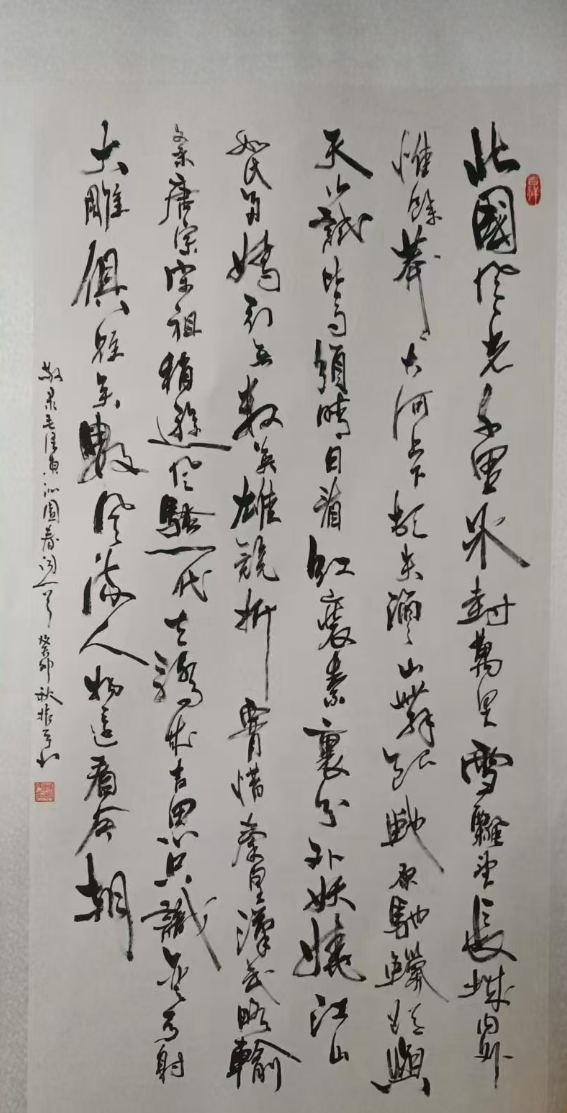 北國風光千里冰封萬里雪飄望長城內外
惟餘莽莽大河上下頓失滔滔山舞銀蛇原馳蠟象欲與
天公試比高須晴日看紅裝素裹分外妖嬈江山
如此多嬌引無數英雄競折腰惜秦皇漢武略輸
文采唐宗宋祖稍遜風騷一代天驕成吉思汗只識彎弓射
大雕俱往矣數風流人物還看今朝
敬录毛澤東沁園春詞一首 癸卯秋